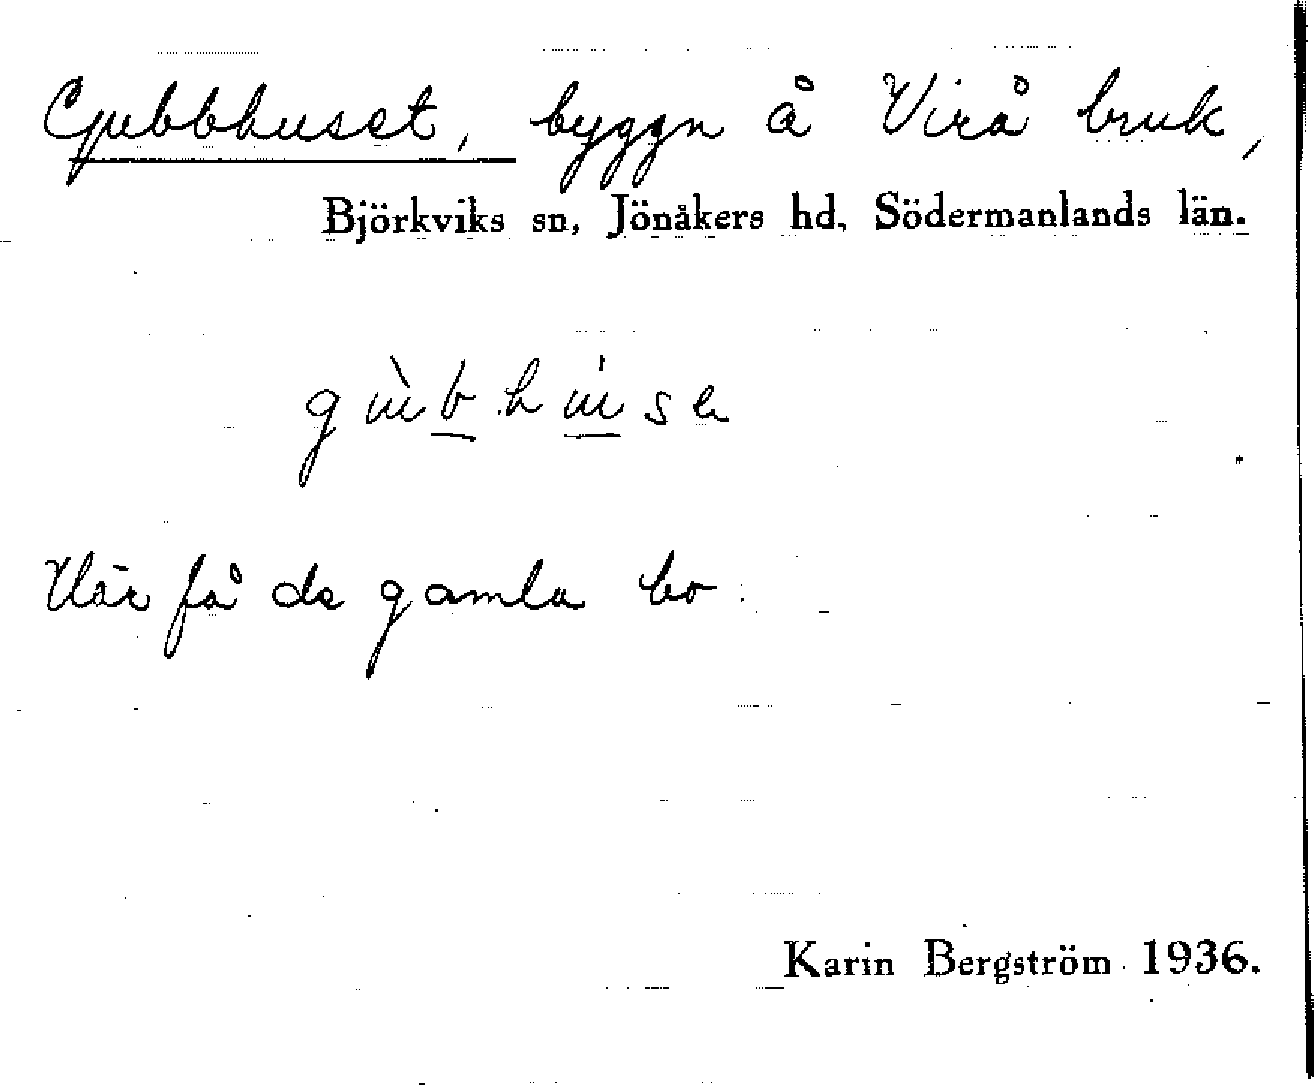 Gubbhuset, byggn å Virå bruk,
Björkviks sn, Jönåkers hd, Södermanlands län.
Här få de gamla bo.
Karin Bergström 1936.